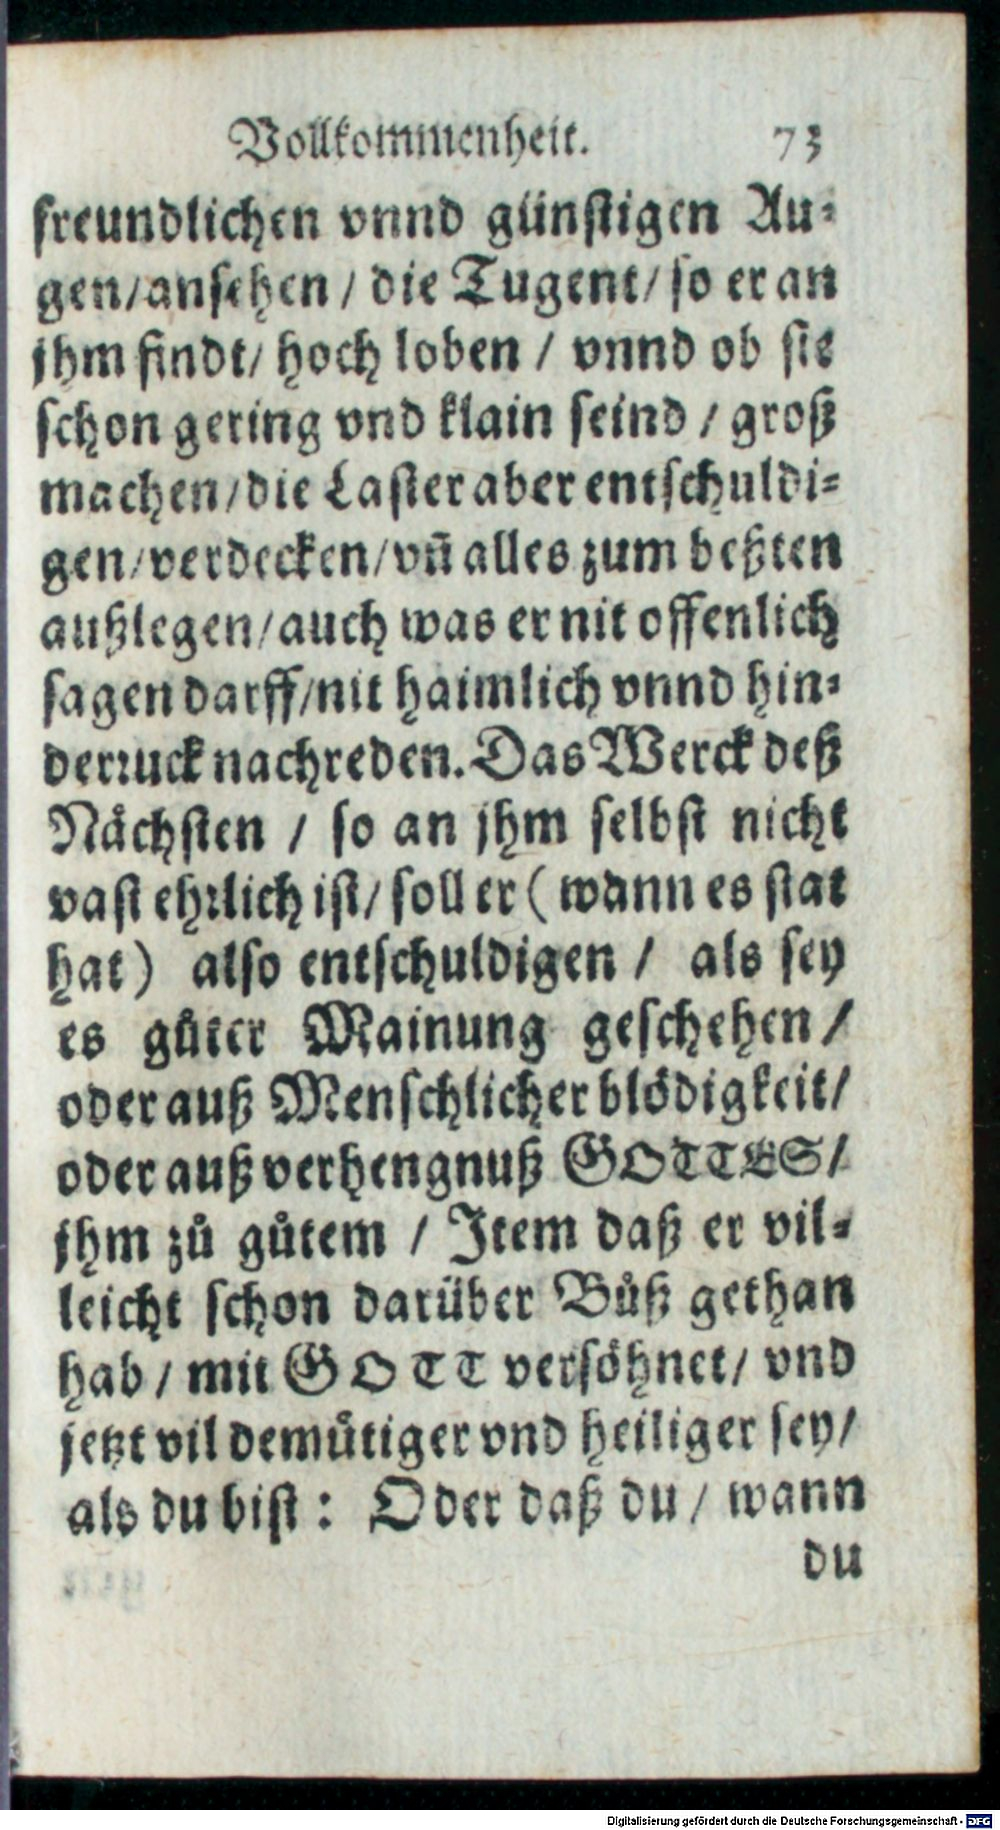 Vollkommenheit. 73
freundlichen vnnd günstigen Au⸗
gen/ansehen / die Tugent/ so er an
jhm findt/ hoch loben / vnnd ob sie
schon gering vnd klain seind / groß
machen/die Laster aber entschuldi⸗
gen/verdecken/vn̄ alles zum beßten
außlegen/auch was er nit offenlich
sagen darff/nit haimlich vnnd hin⸗
derꝛuck nachreden. Das Werck deß
Nåchsten / so an jhm selbst nicht
vast ehꝛlich ist/ soll er ( wann es stat
hat) also entschuldigen / als sey
es gůter Mainung geschehen/
oder auß Menschlicher blödigkeit/
oder auß verhengnuß GOTTES/
jhm zů gůtem / Item daß er vil⸗
leicht schon darüber Bůß gethan
hab / mit GOTT versöhnet/ vnd
jetzt vil demůtiger vnd heiliger sey/
als du bist : Oder daß du / wann
du
Digitalisierung gefördert durch die Deutsche Forschungsgemeinschaft - DFG